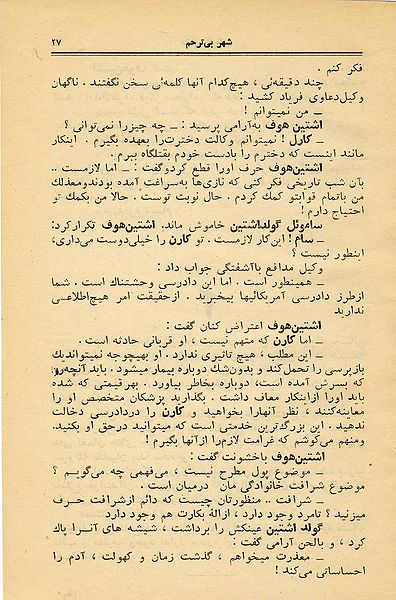 شهر بی‌ترحم ۲۷
فکر کنم .
چند دقیقه‌ئی ، هیچ‌کدام آنها کلمه‌ئی سخن نگفتند . ناگهان
وکیل‌دعاوی فریاد کشید :
ــ من نمیتوانم !
اشتین هوف به‌آرامی پرسید : ــ چه چیزرا نمی‌توانی ؟
ــ کارل ! نمیتوانم وکالت دخترت‌را بعهده بگیرم . اینکار
مانند اینست که دخترم را بادست خودم بقتلگاه ببرم .
اشتین‌هوف حرف اورا قطع کردوگفت : ــ اما لازمست ..
بآن شب تاریخی فکر کنی که نازی‌ها به‌سراغت آمده بودندومعذلك
من باتمام قوابتو کمك کردم . حال نوبت توست . حالا من بکمك تو
احتیاج دارم !
ساموئل گولداشتین خاموش ماند. اشتین‌هوف تکرارکرد:
ــ سام ! این‌کار لازمست . تو کارن را خیلی‌دوست می‌داری،
اینطور نیست ؟
وکیل مدافع باآشفتگی جواب داد :
ــ همینطور است . اما این دادرسی وحشتناك است . شما
ازطرز دادرسی آمریکائیها بیخبرید . ازحقیقت امر هیچ‌اطلاعی
ندارید
اشتین‌هوف اعتراض کنان گفت :
ــ اما کارن که متهم نیست ، او قربانی حادثه است .
ــ این مطلب ، هیچ تاثیری ندارد . او بهیچوجه نمیتواندیك
بازپرسی را تحمل‌کند و بدون‌شك دوباره بیمار میشود . باید آنچه‌را
که بسرش آمده است، دوباره بخاطر بیاورد . بهرقیمتی که شده
باید اورا ازاینکار معاف داشت . بگذارید پزشکان متخصص او را
معاینه‌کنند ، نظر آنهارا بخواهید و کارن را دردادرسی دخالت
ندهید . این بزرگ‌ترین خدمتی است که میتوانید درحق او بکنید.
ومنهم می‌کوشم که غرامت لازم‌را ازآنها بگیرم !
اشتین‌هوف باخشونت گفت :
ــ موضوع پول مطرح نیست ، می‌فهمی چه می‌گویم ؟
موضوع شرافت خانوادگی مان درمیان است .
ــ شرافت .. منظورتان چیست که دائم ازشرافت حرف
میزنید ؟ تامرد وجود دارد ، ازالهٔ بکارت هم وجود دارد
گولد اشتین عینکش را برداشت ، شیشه های آنــرا پاك
کرد ، و بالحن آرامی گفت :
ــ معذرت میخواهم ، گذشت زمان و کهولت ، آدم را
احساساتی می‌کند !